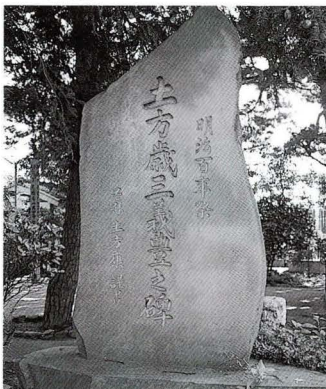 明治百年祭
土方歳三義豊之碑